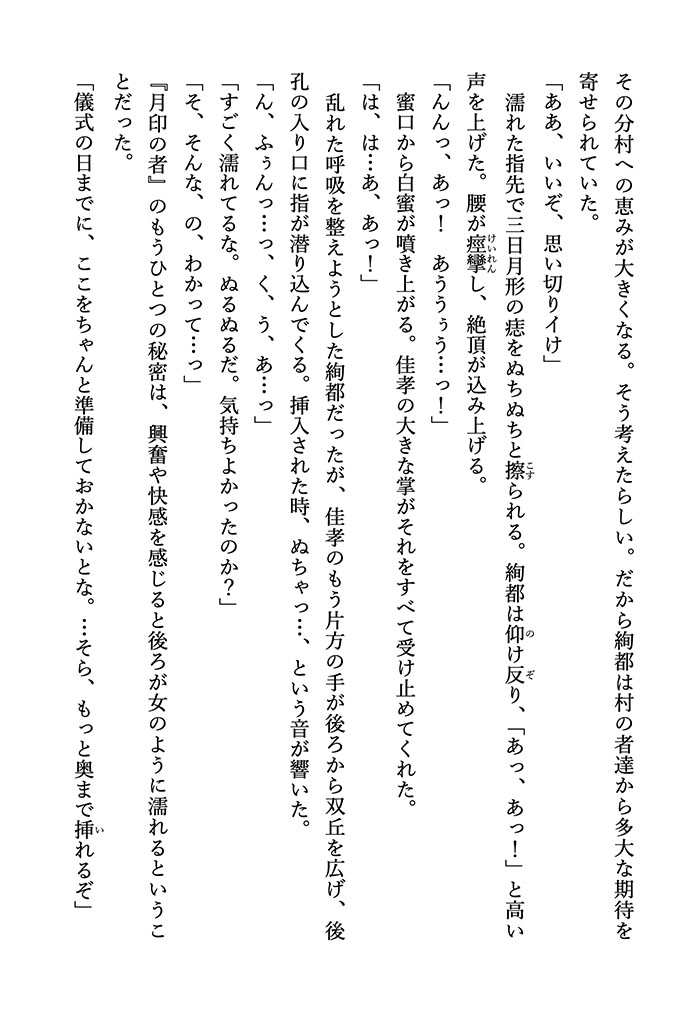 その分村への恵みが大きくなる。そう考えたらしい。だから絢都は村の者達から多大な期待を
寄せられていた。
「ああ、いいぞ、思い切りイけ」
濡れた指先で三日月形の痣をぬちぬちと擦られる。絢都は仰け反り、「あっ、あっ!」と高い
声を上げた。腰が痙攣し、絶頂が込み上げる。
「んんっ、あっ! あううぅう…っ!」
蜜口から白蜜が噴き上がる。佳孝の大きな掌がそれをすべて受け止めてくれた。
「は、は…あ、あっ!」
乱れた呼吸を整えようとした絢都だったが、佳孝のもう片方の手が後ろから双丘を広げ、後
孔の入り口に指が潜り込んでくる。挿入された時、ぬちゃっ…、という音が響いた。
「ん、ふぅんっ…っ、く、う、あ…っ」
「すごく濡れてるな。ぬるぬるだ。気持ちよかったのか?」
「そ、そんな、の、わかって…っ」
『月印の者』のもうひとつの秘密は、興奮や快感を感じると後ろが女のように濡れるというこ
とだった。
「儀式の日までに、ここをちゃんと準備しておかないとな。…そら、もっと奥まで挿れるぞ」